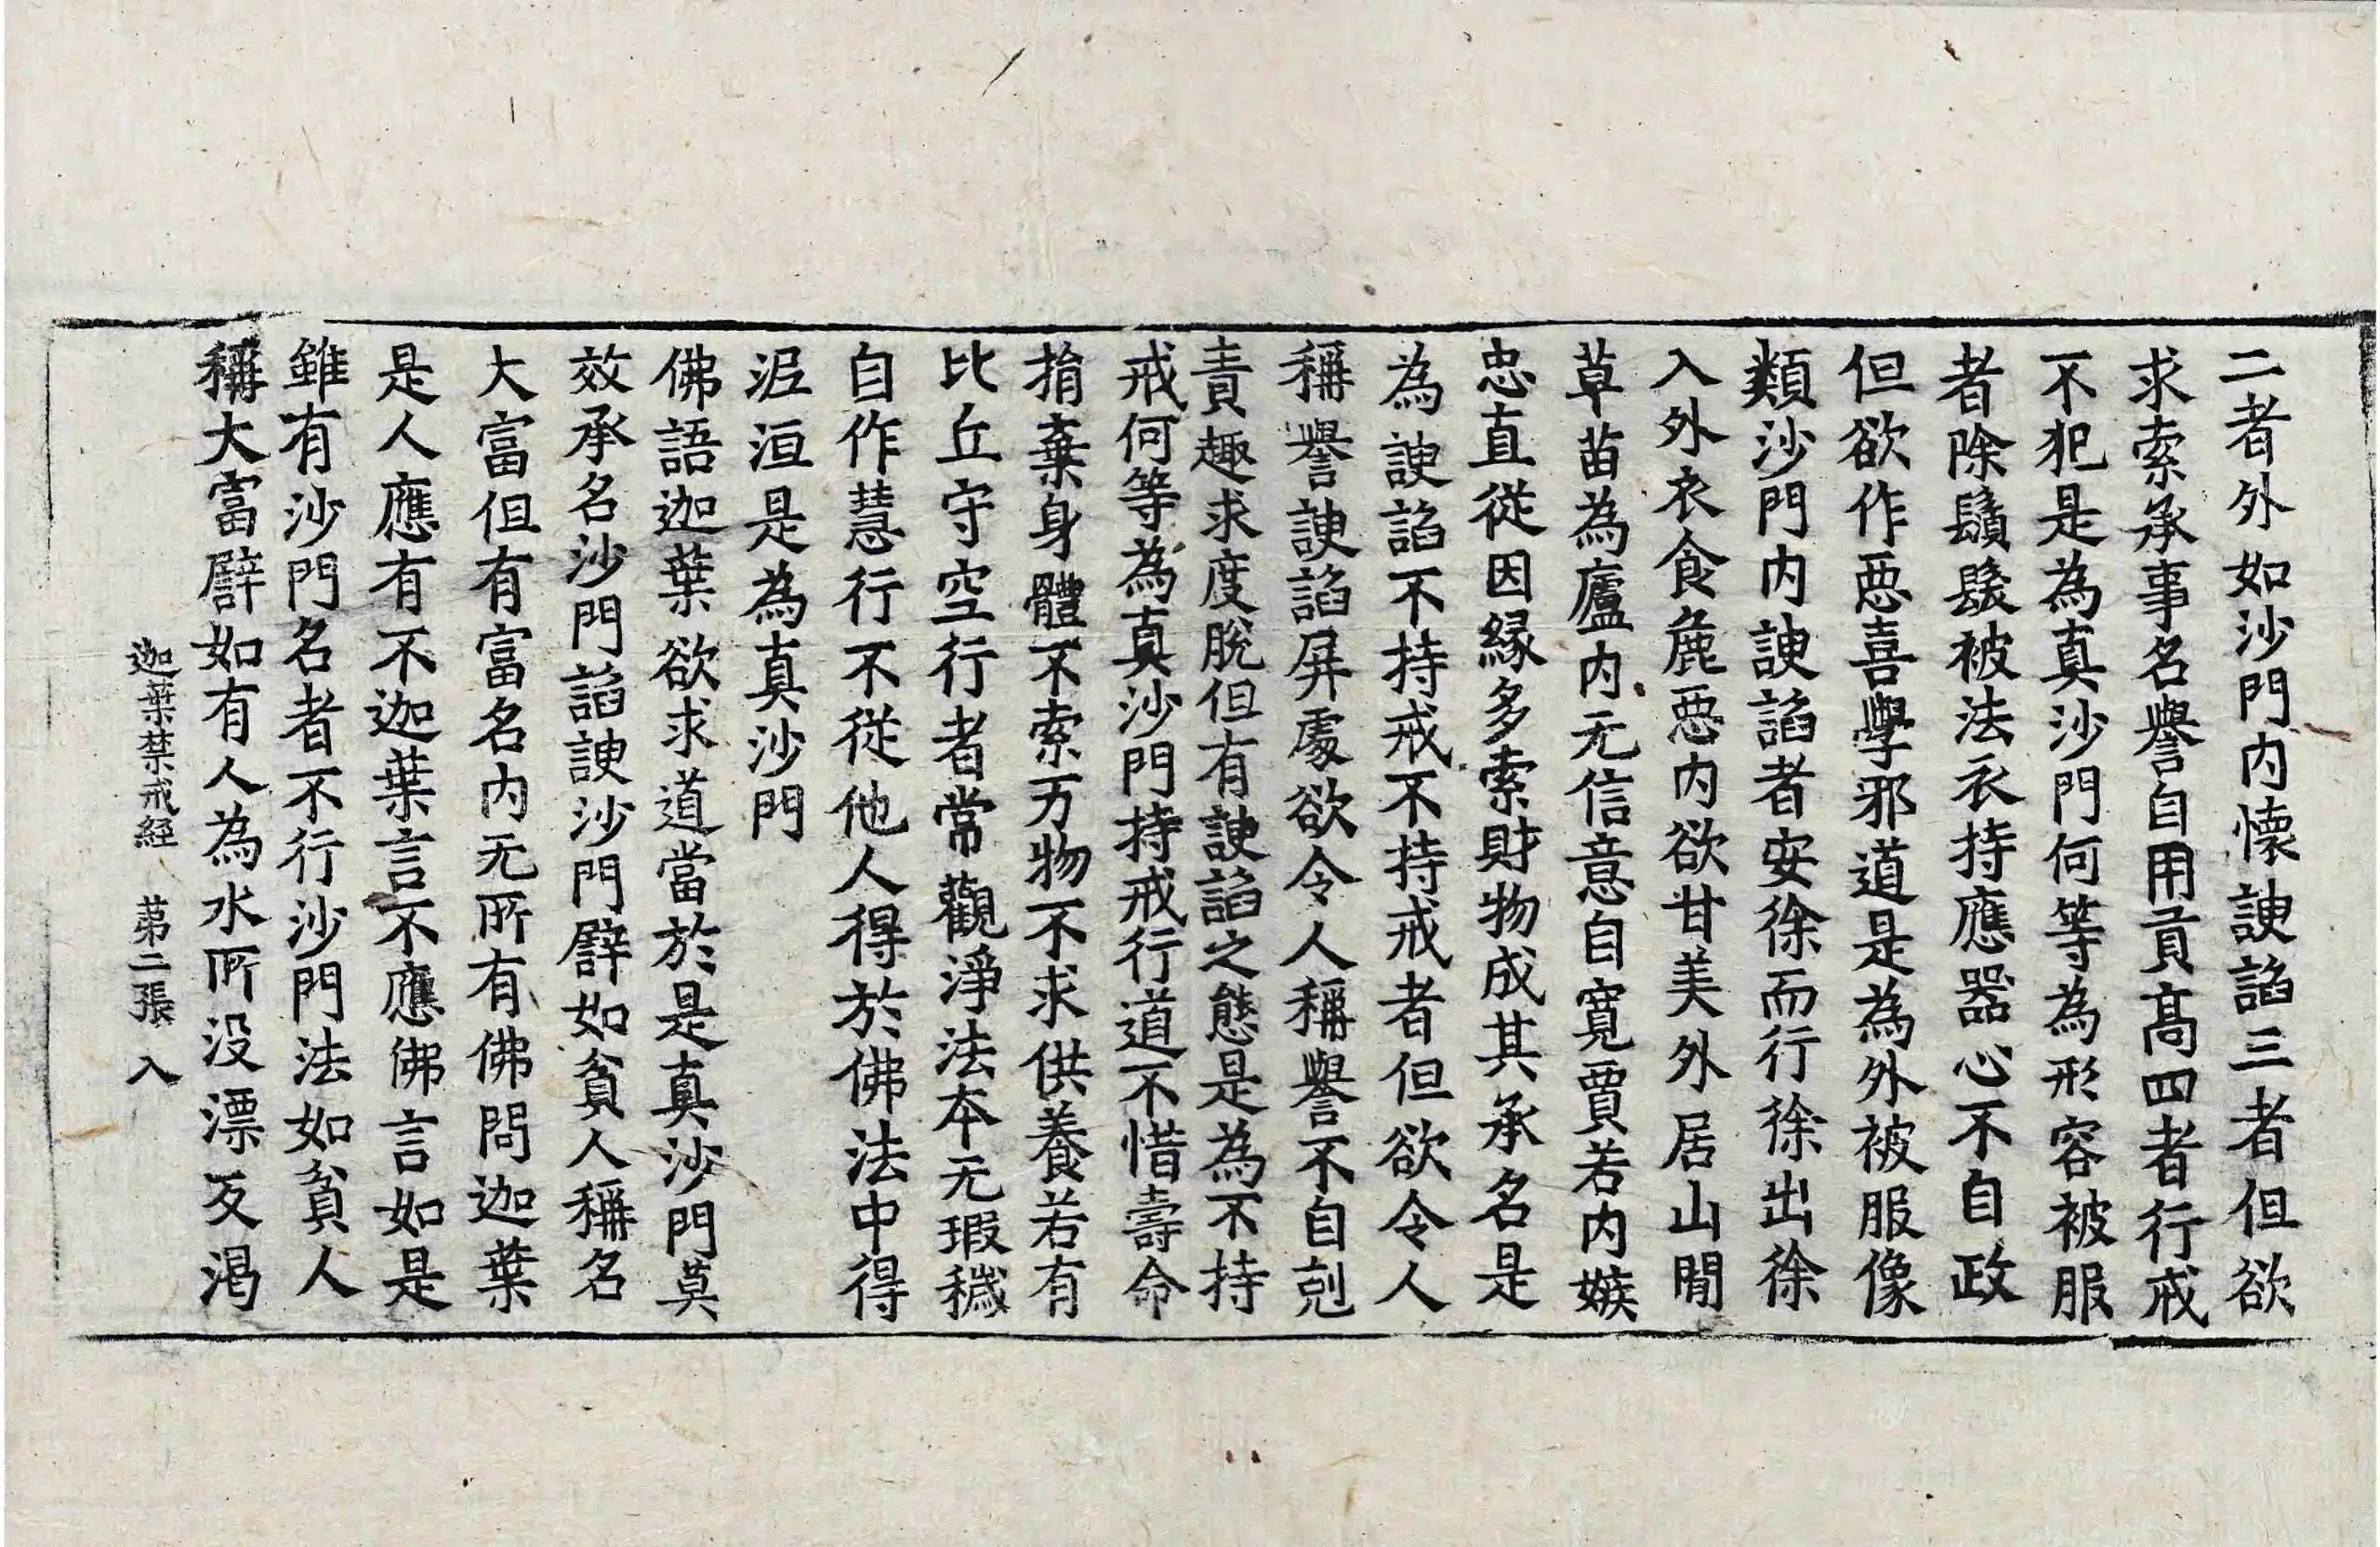 二者外如沙門内懷諛諂三者但欲
求索承事名譽自用貢髙四者行戒
不犯是為真沙門何等為形容被服
者除鬚髮被法衣持應器心不自政
但欲作惡喜學邪道是為外被服像
類沙門内諛諂者安徐而行徐出徐
入外衣食麁惡内欲甘美外居山閒
草苗為廬内无信意自寬賈若内嫉
忠直從因縁多索財物成其承名是
為諛諂不持戒不持戒者但欲令人
稱譽諛諂屏處欲令人稱譽不自剋
責趣求度脫但有諛諂之態是為不持
戒何等為真沙門持戒行道不惜壽命
捐棄身體不索万物不求供養若有
比丘守空行者常觀淨法本无瑕穢
自作慧行不從他人得於佛法中得
泥洹是為真沙門
佛語迦葉欲求道當於是真沙門莫
效承名沙門諂諛沙門譬如貧人稱名
大富但有富名内无所有佛問迦葉
是人應有不迦葉言不應佛言如是
雖有沙門名者不行沙門法如貧人
稱大富譬如有人為水所没漂反渇
迦葉禁戒經　苐二張　入